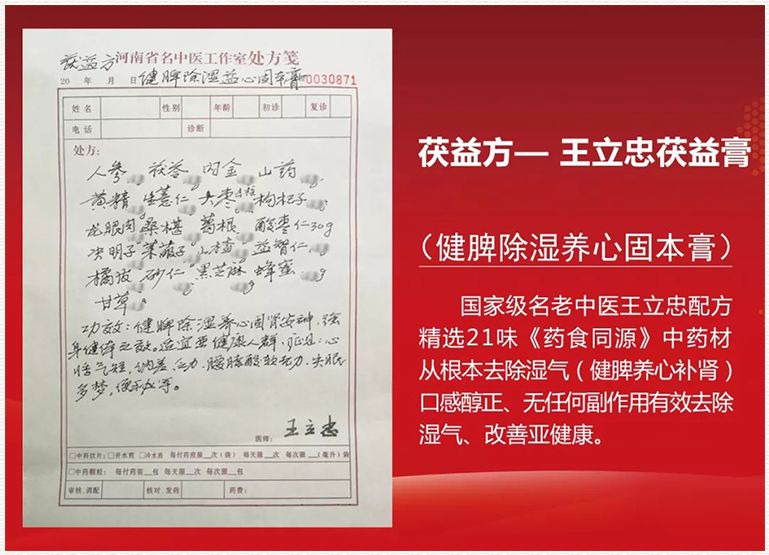 茯益方河南省名中医工作室处方笺
20 年 月 日 健脾除湿益心固本膏 0030871
姓名 性别 年龄 初诊 复诊
电话 诊断
处方:
人参 g 茯苓 g 内金 g 山药 g
黄精 g 生薏仁 g 大枣 g 枸杞子 g
龙眼肉 g 桑椹 g 葛根 g 酸枣仁30g
决明子 g 莱菔子 g 山楂 g 益智仁 g
橘皮 g 砂仁 g 黑芝麻 g 蜂蜜 g
甘草 g
功效:健脾除湿养心固肾安神,强
身健体之效。适宜亚健康人群,症见:心
悸气短,纳差、乏力、腰膝酸软无力、失眠
多梦,便秘等。
医师: 王立忠
□中药饮片:□开水煎 □冷水煎 每付药煎服__次(袋) 每天服__次 每次服__(毫升)袋
□中药颗粒: 每付药装__包 每天服__次 每次服__包
审核、调配 核对、发药 药费:
茯益方— 王立忠茯益膏
(健脾除湿养心固本膏)
国家级名老中医王立忠配方
精选21味《药食同源》中药材
从根本去除湿气(健脾养心补肾)
口感醇正、无任何副作用有效去除
湿气、改善亚健康。